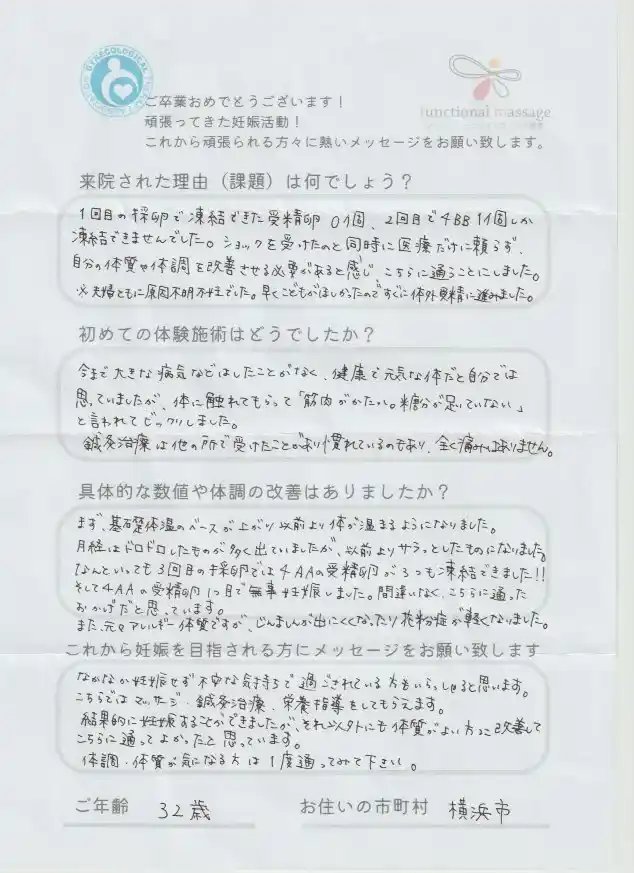 GYNECOLOGICAL
functional massage
ご卒業おめでとうございます！
頑張ってきた妊娠活動！
これから頑張られる方々に熱いメッセージをお願い致します。
来院された理由（課題）は何でしょう？
1回目の採卵で凍結できた受精卵 0個、2回目で4BB 1個しか
凍結できませんでした。ショックを受けたのと同時に医療だけに頼らず、
自分の体質や体調を改善させる必要があると感じ、こちらに通うことにしました。
※夫婦ともに原因不明不妊でした。早くこどもがほしかったのですぐに体外受精に進みました。
初めての体験施術はどうでしたか？
今まで大きな病気などはしたことがなく、健康で元気な体だと自分では
思っていましたが、体に触れてもらって「筋肉がかたい。糖分が足りていない」
と言われてビックリしました。
鍼灸治療は他の所で受けたことがあり慣れているのもあり、全く痛みはありません。
具体的な数値や体調の改善はありましたか？
まず、基礎体温のベースが上がり以前より体が温まるようになりました。
月経はドロドロしたものが多く出ていましたが、以前よりサラッとしたものになりました。
なんといっても3回目の採卵では4AAの受精卵が3つも凍結できました!!
そして4AAの受精卵1つ目で無事妊娠しました。間違いなく、こちらに通った
おかげだと思っています。
また、元々アレルギー体質ですが、じんましんが出にくくなったり花粉症が軽くなりました。
これから妊娠を目指される方にメッセージをお願い致します
なかなか妊娠せず不安な気持ちで過ごされている方もいらっしゃると思います。
こちらではマッサージ・鍼灸治療、栄養指導をしてもらえます。
結果的に妊娠することができましたが、それ以外にも体質がよい方に改善して
こちらに通ってよかったと思っています。
体調・体質が気になる方は1度通ってみて下さい。
ご年齢 32歳 お住いの市町村 横浜市